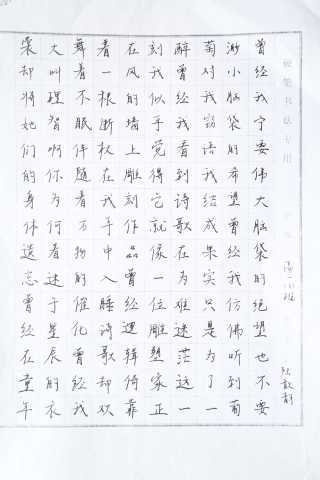 曾经我宁要伟大脑袋的绝望也不要
渺小脑袋的希望曾经我仿佛听到葡
萄对我窃语我结成果实只是为了一
醉曾经我看到诗歌在为难迷茫这一
刻我似乎觉得它就像一位雕塑家正
在风的墙上雕刻作品曾经逻辑倚靠
看一根断杖在我手中入睡诗歌却欢
舞着不眠伴随着万物的催化曾经我
大叫理智啊你为何看迷于星辰的衣
裳却将她们的身体遗忘曾经在童年